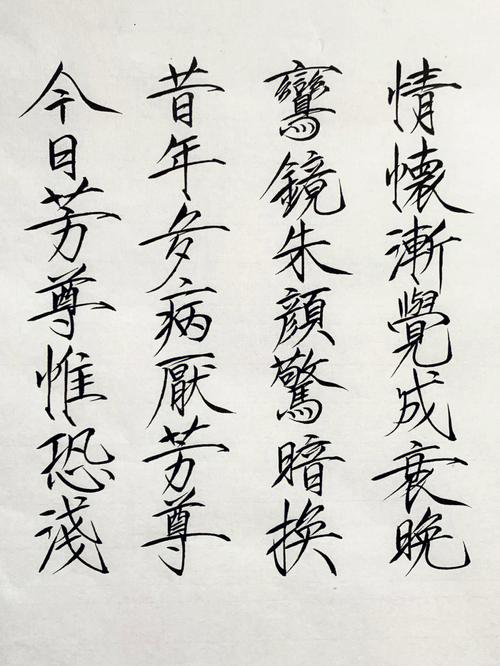 情懷漸覺成衰晚
鸞鏡朱顏驚暗換
昔年多病厭芳尊
今日芳尊惟恐淺